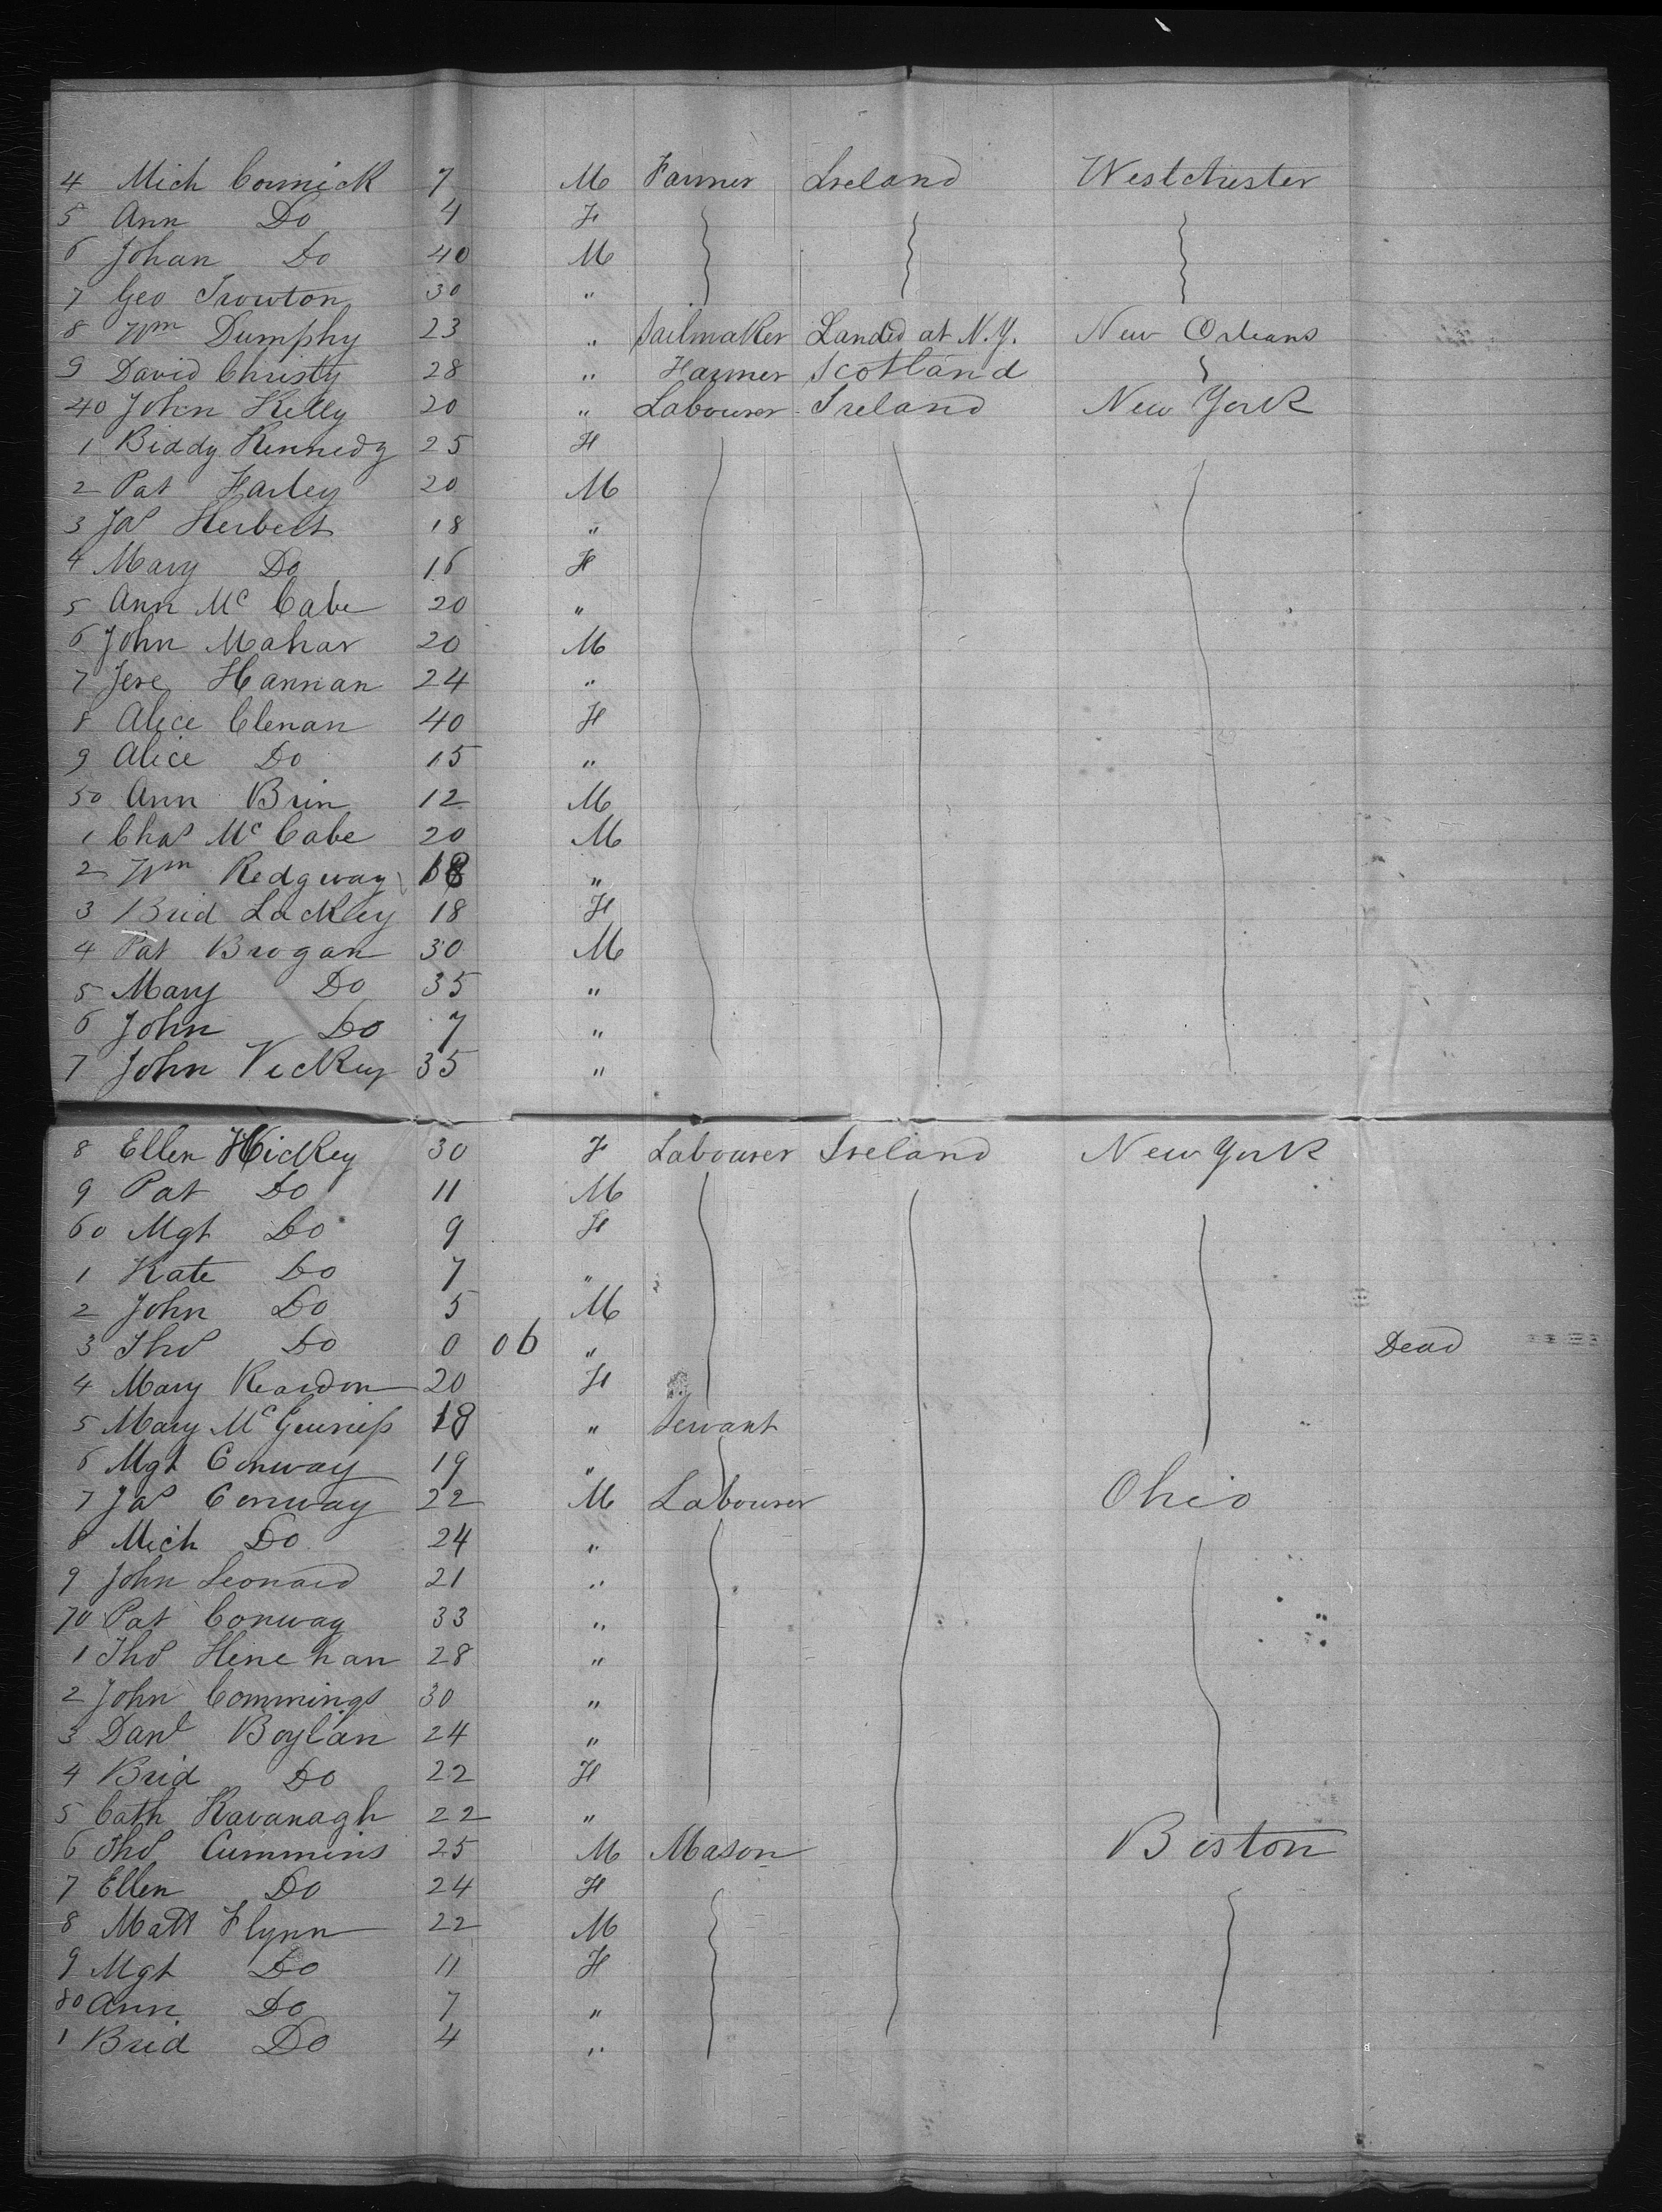 4 Mich Cormick 7 M Farmer Ireland Westchester
5 Ann Do 4 F
6 Johan Do 40 M
7 Geo Trowton 30 "
8 Wm Dumphy 23 " Sailmaker Landed at N.Y. New Orleans
9 David Christy 28 " Farmer Scotland
40 John Kelly 20 " Labourer Ireland New York
1 Biddy Kennedy 25 F
2 Pat Farley 20 M
3 Jas Herbert 18 "
4 Mary Do 16 F
5 Ann Mc Cabe 20 "
6 John Mahar 20 M
7 Jere Hannan 24 "
8 Alice Clenan 40 F
9 Alice Do 15 "
50 Ann Brin 12 M
1 Chas Mc Cabe 20 M
2 Wm Redgway 18 "
3 Brid Lackey 18 F
4 Pat Brogan 30 M
5 Mary Do 35 "
6 John Do 7 "
7 John Vickey 35 "
8 Ellen Hickey 30 F Labourer Ireland New York
9 Pat Do 11 M
60 Mgt Do 9 F
1 Kate Do 7 "
2 John Do 5 M
3 Thos Do 0 06 " Dead
4 Mary Reardon 20 F
5 Mary McGuiness 18 " Servant
6 Mgt Conway 19 "
7 Jas Conway 22 M Labourer Ohio
8 Mich Do 24 "
9 John Leonard 21 "
70 Pat Conway 33 "
1 Thos Henehan 28 "
2 John Commings 30 "
3 Danl Boylan 24 "
4 Brid Do 22 F
5 Cath Kavanagh 22 "
6 Thos Cummins 25 M Mason Boston
7 Ellen Do 24 F
8 Matt Flynn 22 M
9 Mgt Do 11 F
80 Ann Do 7 "
1 Brid Do 4 "